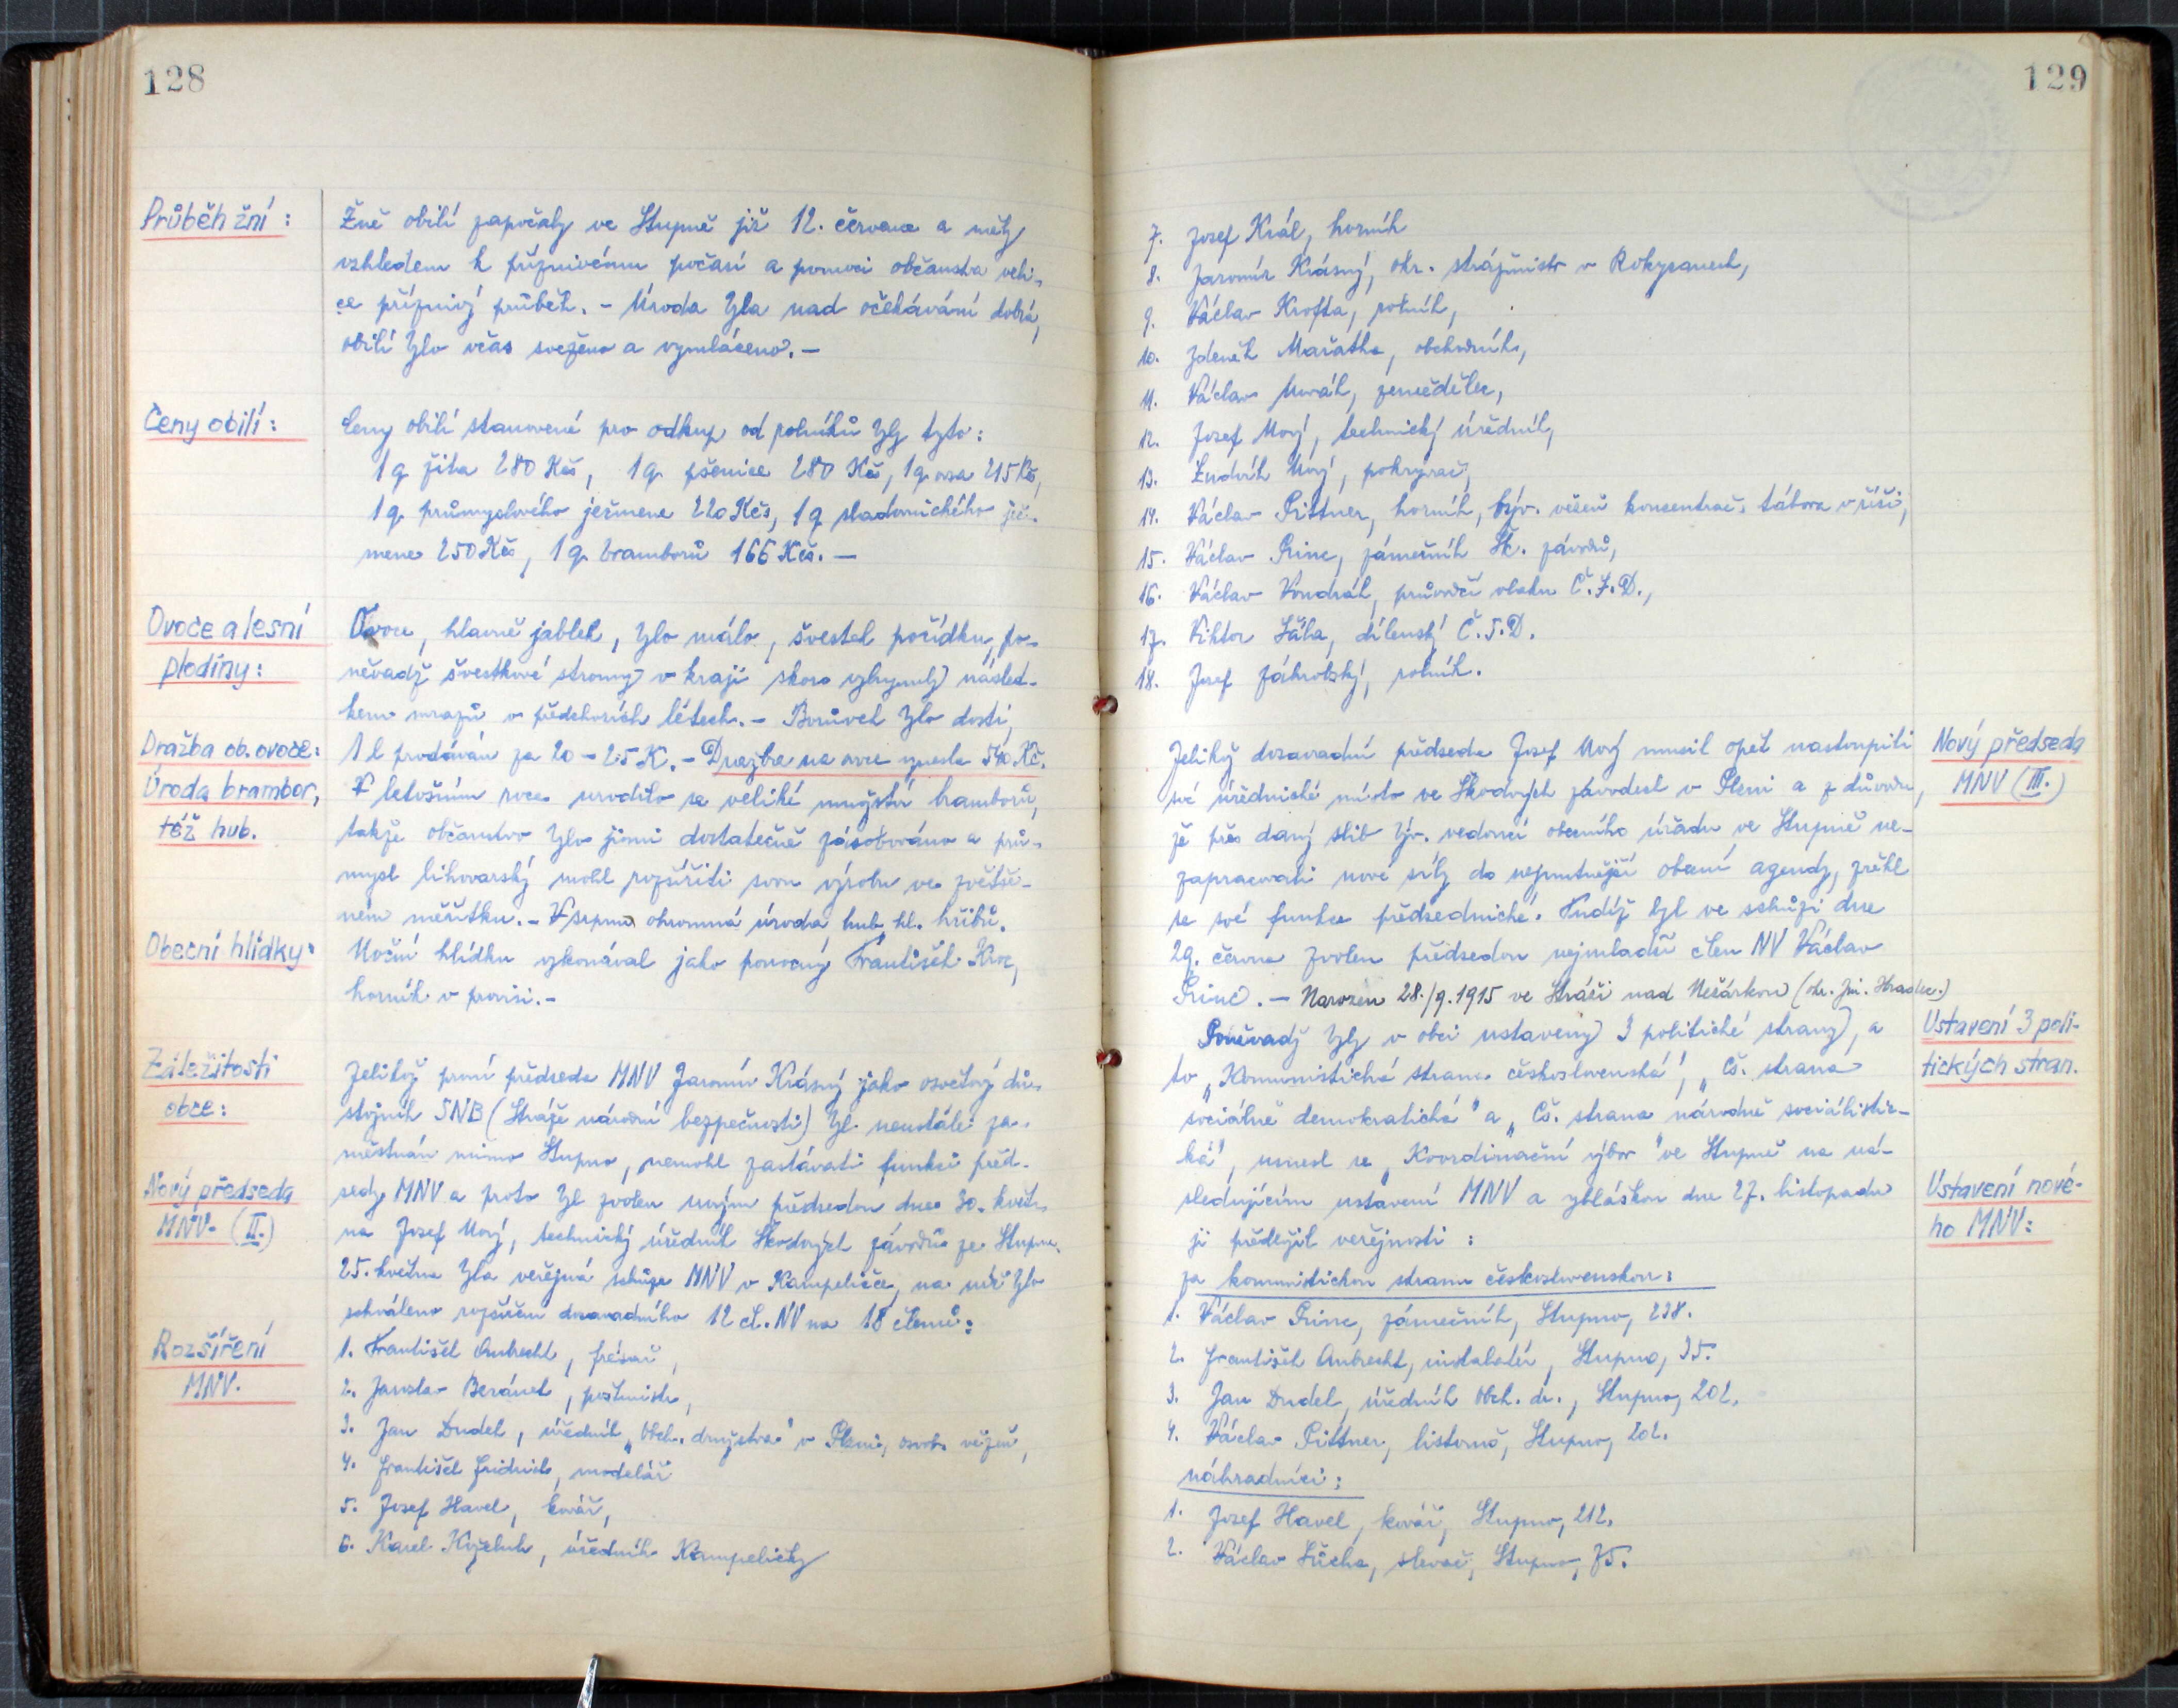 128
Průběh žní:
Žně obilí započaly ve Stupně již 12. července a měly
vzhledem k příznivému počasí a pomoci občanstva veli-
ce příznivý průběh. - Úroda byla nad očekávání dobrá,
obilí bylo včas svezeno a vymláceno. -
Ceny obilí:
Ceny obilí stanovené pro odkup od rolníků byly tyto:
1 q žita 280 Kčs, 1 q pšenice 280 Kčs, 1 q ovsa 215 Kčs,
1 q průmyslového ječmene 220 Kčs, 1 q sladovnického ječ-
mene 250 Kčs, 1 q bramborů 166 Kčs. -
Ovoce a lesní
plodiny:
Ovoce, hlavně jablek, bylo málo, švestek pořídku, po-
něvadž švestkové stromy v kraji skoro vyhynuly násled-
kem mrazů v předchozích létech. - Borůvek bylo dosti,
Dražba ob. ovoce:
1 l prodáván za 20 - 25 K. - Dražba na ovoce vynesla 540 Kč.
Úroda brambor,
též hub.
V letošním roce urodilo se veliké množství bramborů,
takže občanstvo bylo jimi dostatečně zásobováno a prů-
mysl lihovarský mohl rozšířiti svou výrobu ve zvětše-
ném měřítku. - V srpnu ohromná úroda hub hl. hřibů.
Obecní hlídky:
Noční hlídku vykonával jako ponocný František Kroc,
horník v provisi. -
Záležitosti
obce:
Jelikož první předseda MNV Jaromír Krásný jako osvětový dů-
stojník SNB (Stráže národní bezpečnosti) byl neustále za-
městnán mimo Stupno, nemohl zastávati funkci před-
Nový předseda
MNV. (II.)
sedy MNV a proto byl zvolen novým předsedou dne 30. květ-
na Josef Nový, technický úředník Škodových závodů ze Stupna.
25. května byla veřejná schůze MNV v Kampeličce, na níž bylo
schváleno rozšíření dosavadního 12 čl. NV na 18 členů:
Rozšíření
MNV.
1. František Aubrecht, frésař,
2. Jaroslav Beránek, poštmistr,
3. Jan Dudel, úředník "Obch. družstva" v Plzni, osvob. vězeň,
4. František Fridrich, modelář
5. Josef Havel, kovář,
6. Karel Koželuh, úředník Kampeličky
129
7. Josef Král, horník
8. Jaromír Krásný, okr. strážmistr v Rokycanech,
9. Václav Krofta, rolník,
10. Zdeněk Mařatka, obchodník,
11. Václav Novák, zemědělec,
12. Josef Nový, technický úředník,
13. Ludvík Nový, pokrývač,
14. Václav Pittner, horník, býv. vězeň koncentrač. tábora v říši,
15. Václav Princ, zámečník Šk. závodů,
16. Václav Vondrák, průvodčí vlaku Č.S.D.,
17. Viktor Sáha, dílenský Č.S.D.
18. Josef Záhrobský, rolník.
Nový předseda
MNV (III.)
Jelikož dosavadní předseda Josef Nový musil opět nastoupiti
své úřednické místo ve Škodových závodech v Plzni a z důvodu,
že přes daný slib býv. vedoucí obecního úřadu ve Stupně ne-
zapracovati nové síly do nejnutnější obecní agendy, zřekl
se své funkce předsednické. Tudíž byl ve schůzi dne
29. června zvolen předsedou nejmladší člen NV Václav
Princ. - Narozen 28./9.1915 ve Stráži nad Nežárkou (okr. Jin. Hradec.)
Ustavení 3 poli-
tických stran.
Poněvadž byly v obci ustaveny 3 politické strany, a
to "Komunistická strana československá", "Čs. strana
sociálně demokratická" a "Čs. strana národně socialistic-
ká", usnesl se "Koordinační výbor" ve Stupně na ná-
Ustavení nové-
ho MNV:
sledujícím ustavení MNV a vyhláškou dne 27. listopadu
ji předložil veřejnosti:
za komunistickou stranu československou:
1. Václav Princ, zámečník, Stupno, 238.
2. František Aubrecht, instalatér, Stupno, 35.
3. Jan Dudel, úředník Obch. dr., Stupno, 202.
4. Václav Pittner, listonoš, Stupno, 202.
náhradníci:
1. Josef Havel, kovář, Stupno, 212.
2. Václav Sůcha, slevač, Stupno, 75.